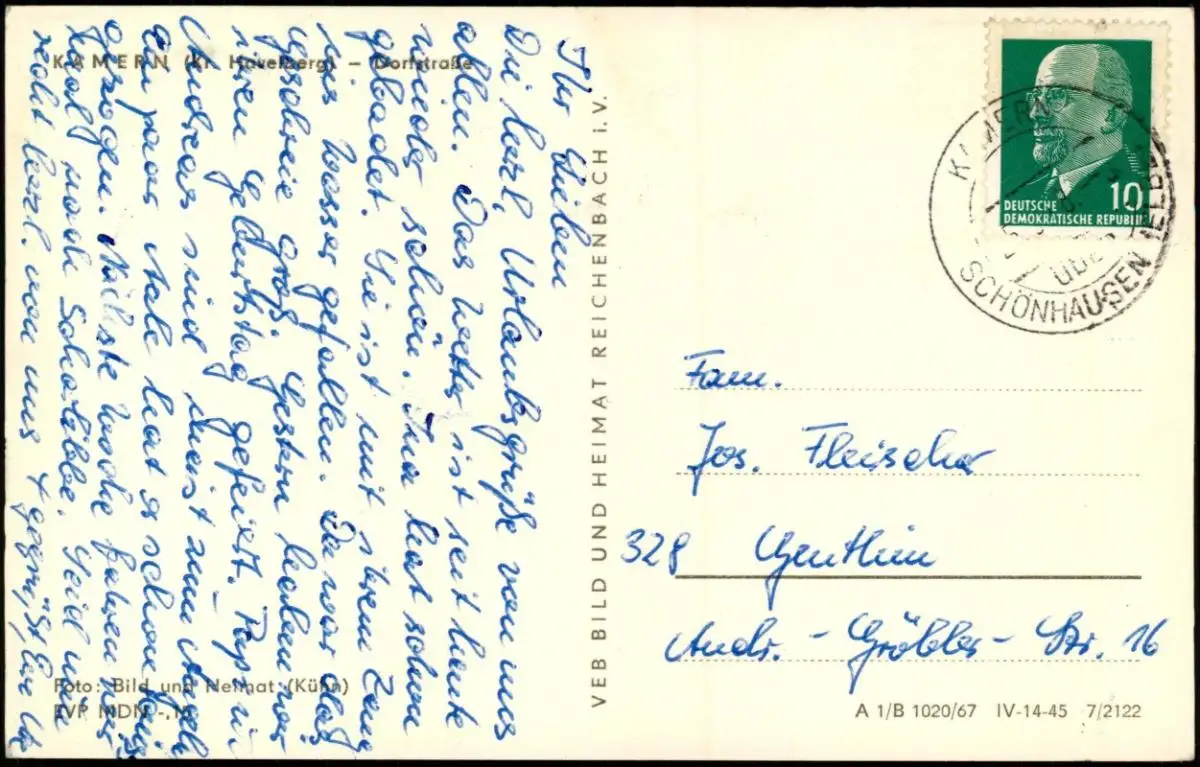 KAMERN (Kr. Havelberg) – Dorfstraße
Ihr Lieben
Die herzl. Urlaubsgrüße von uns
allen. Das Wetter ist seit heute
wieder schön. Ina hat schon
gebadet. Sie ist mit ihrem Zeug
ins Wasser gefallen. Da war das
Geschreie groß. Gestern haben wir
ihren Geburtstag gefeiert. Papi u.
Andreas sind meist zum Angeln
Ein paar Aale hat es schon
gezogen. Nächste Woche fahren wir
mal nach Schollene. Seid nun
recht herzl. von uns + gegrüßt Eure
Foto: Bild und Heimat (Kühn)
EVP MDN -,
VEB BILD UND HEIMAT REICHENBACH i. V.
DEUTSCHE
DEMOKRATISCHE REPUBLIK
10
KAMERN
ÜBER
SCHÖNHAUSEN (ELBE)
Fam.
Jos. Fleischer
328 Genthin
Andr. - Gröbler - Str. 16
A 1/B 1020/67 IV-14-45 7/2122